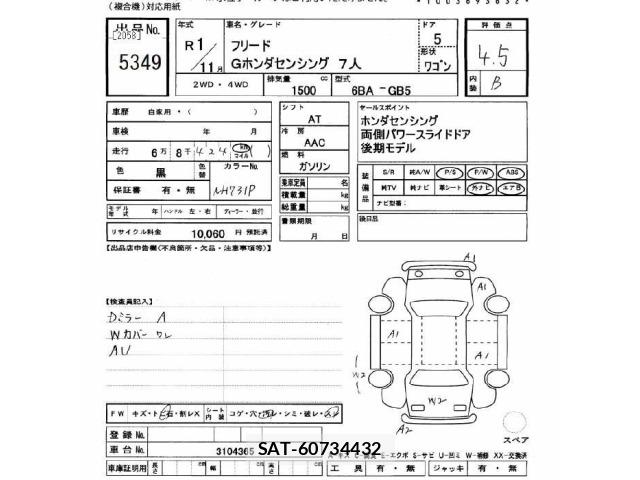 (複合機)対応用紙
*1003693632*
出品No.
[2058]
5349
年式
R1/11月
車名・グレード
フリード
Gホンダセンシング 7人
ドア
5
形状
ワゴン
評価点
4.5
内装
B
2WD・4WD
排気量
1500
cc
型式
6BA - GB5
車歴 自家用・( )
車検 年 月
走行 6万8千424 km マイル ( )
色 黒
色替
カラーNo.
NH731P
保証書 有・無
モデル年式 年 ハンドル 左・右 ディーラー・並行
リサイクル料金 10,060 円 預託済
シフト
AT
冷房
AAC
燃料
ガソリン
乗車定員 名
積載量 kg
総重量 kg
書類期限
月 日
セールスポイント
ホンダセンシング
両側パワースライドドア
後期モデル
装備品
S/R 純A/W P/S P/W ABS
純TV 純ナビ 革シート 外ナビ エアB
ナビ型番：
後日品
【出品店申告欄(不良箇所・欠品・注意事項等)】
【検査員記入】
Dミラー A
Wカバー ワレ
AU
A1
A1
A1
A1
W2
W2
A2
スペア
FW キズ・ト石・割レX
シート内装
コゲ・穴・汚レ・シミ・破レ・スレ
登録No.
車台No.
3104365
SAT-60734432
車庫証明用 長さ cm 幅 cm 高さ cm
工具 有・無 ジャッキ 有・無